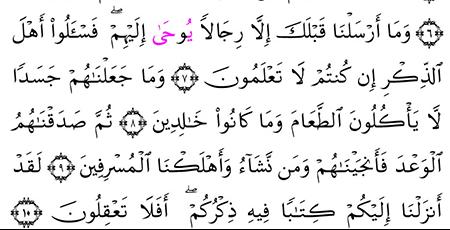 ﴿٦﴾ وَمَا أَرْسَلْنَا قَبْلَكَ إِلَّا رِجَالًا يُوحَىٰ إِلَيْهِمْ ۖ فَسْـَٔلُوٓا۟ أَهْلَ
ٱلذِّكْرِ إِن كُنتُمْ لَا تَعْلَمُونَ ﴿٧﴾ وَمَا جَعَلْنَـٰهُمْ جَسَدًا
لَّا يَأْكُلُونَ ٱلطَّعَامَ وَمَا كَانُوا۟ خَـٰلِدِينَ ﴿٨﴾ ثُمَّ صَدَقْنَـٰهُمُ
ٱلْوَعْدَ فَأَنجَيْنَـٰهُمْ وَمَن نَّشَآءُ وَأَهْلَكْنَا ٱلْمُسْرِفِينَ ﴿٩﴾ لَقَدْ
أَنزَلْنَآ إِلَيْكُمْ كِتَـٰبًا فِيهِ ذِكْرُكُمْ ۖ أَفَلَا تَعْقِلُونَ ﴿١٠﴾